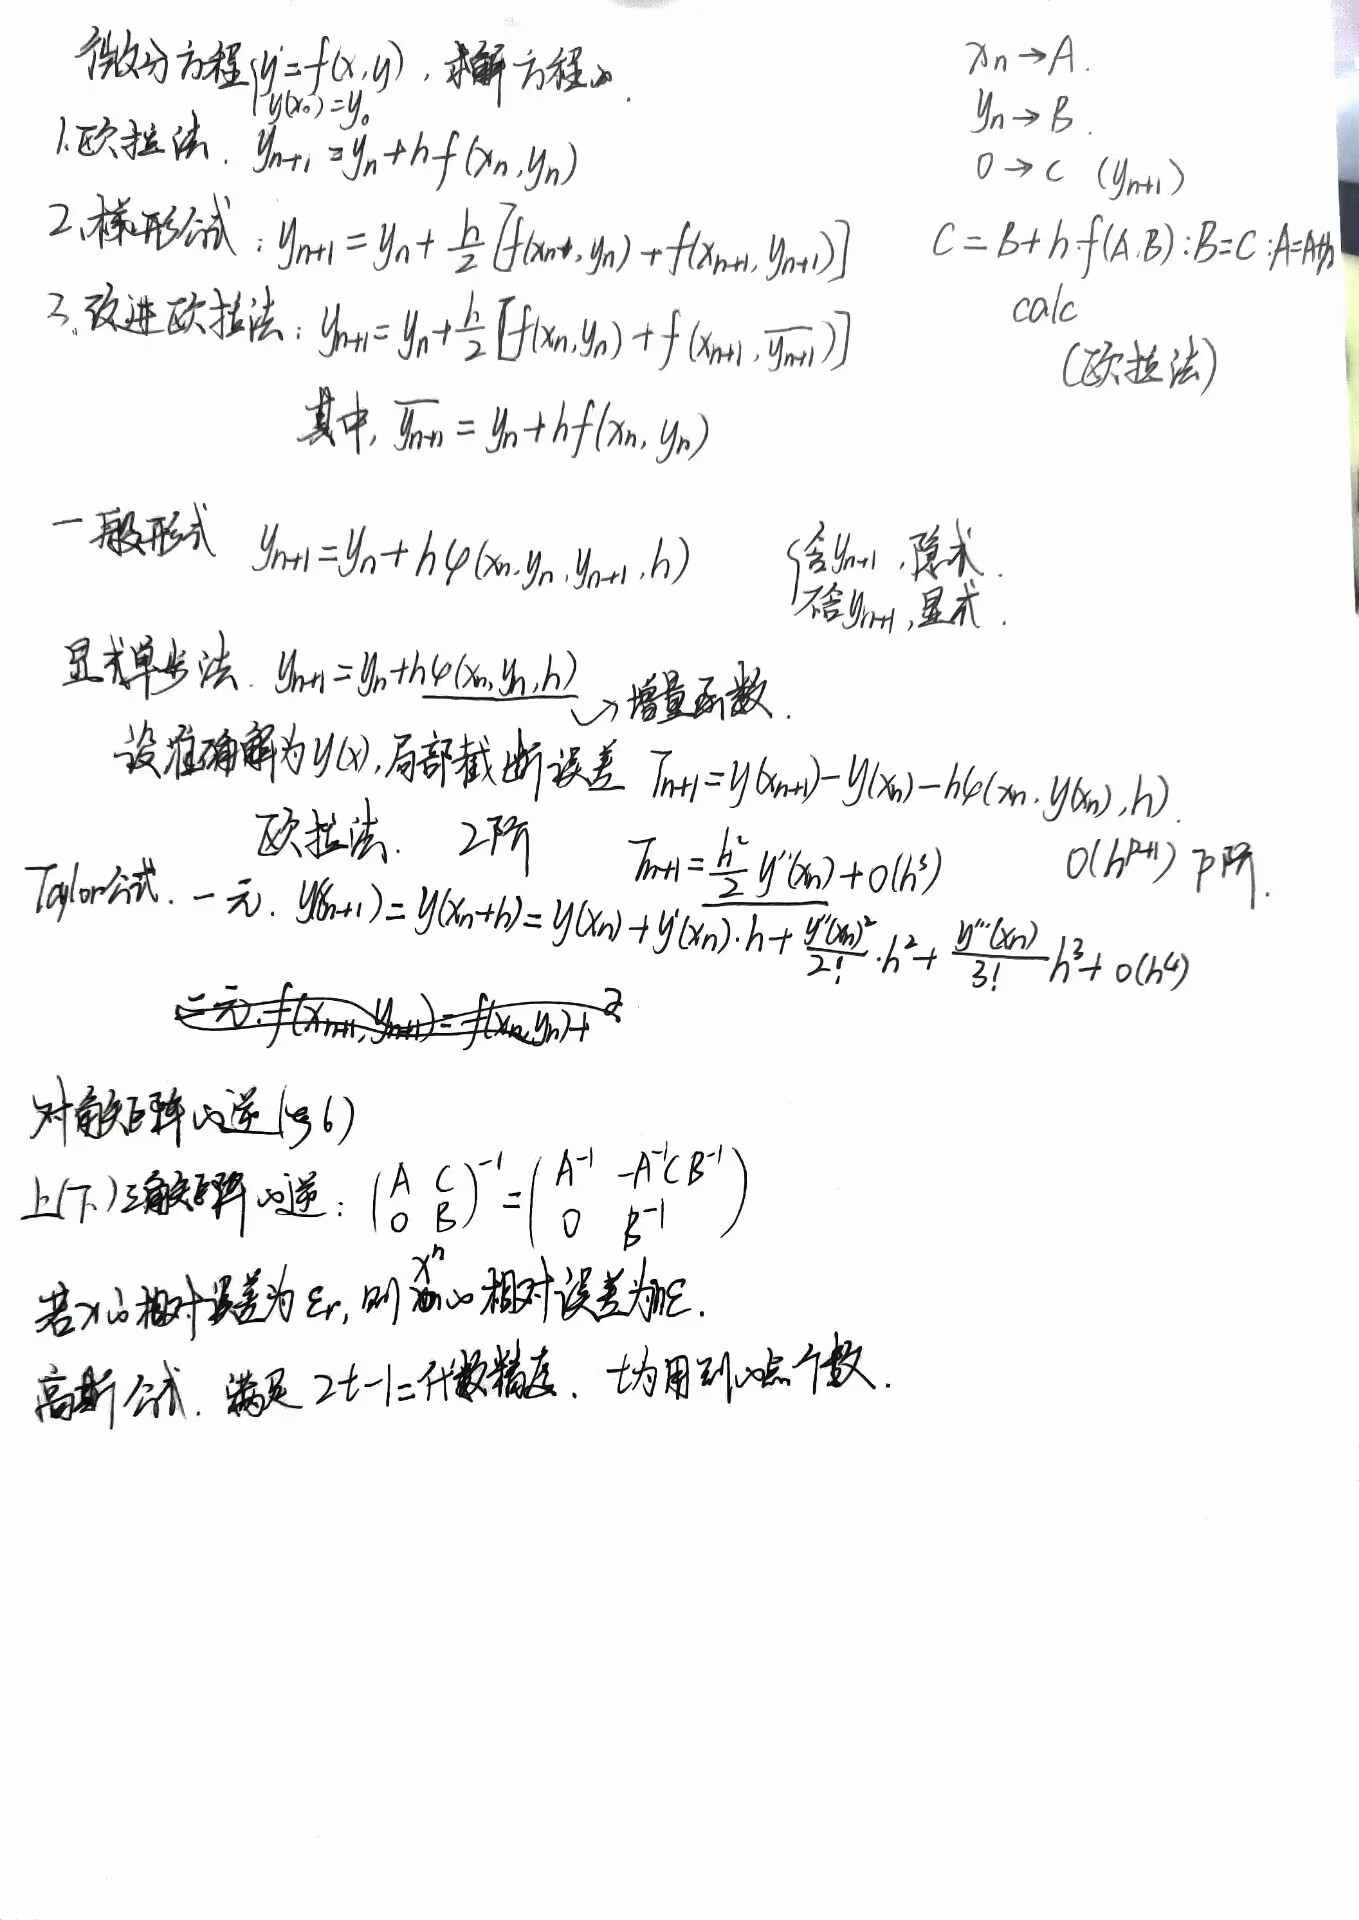 微分方程{y'=f(x,y), 求解方程.
y(x₀)=y₀
xn→A.
yn→B.
0→C (yn+1)
1.欧拉法. yn+1=yn+hf(xn,yn)
2.梯形公式: yn+1=yn+h/2[f(xn,yn)+f(xn+1,yn+1)]
C=B+h·f(A,B):B=C:A=A+h
calc
(欧拉法)
3.改进欧拉法: yn+1=yn+h/2[f(xn,yn)+f(xn+1,y̅n+1)]
其中, y̅n+1=yn+hf(xn,yn)
一般形式 yn+1=yn+hφ(xn,yn,yn+1,h) {含yn+1,隐式.
不含yn+1,显式.
显式单步法. yn+1=yn+hφ(xn,yn,h)
→增量函数.
设准确解为y(x),局部截断误差 Tn+1=y(xn+1)-y(xn)-hφ(xn,y(xn),h).
欧拉法. 2阶 Tn+1=h²/2 y''(xn)+O(h³) O(h^(p+1)) P阶.
Taylor公式. 一元. y(xn+1)=y(xn+h)=y(xn)+y'(xn)·h+y''(xn)²/2!·h²+y'''(xn)/3! h³+o(h⁴)
二元.f(xn+1,yn+1)=f(xn,yn)+
对角矩阵的逆(书6)
上(下)三角矩阵的逆: (A C
0 B)⁻¹=(A⁻¹ -A⁻¹CB⁻¹
0 B⁻¹)
若x的相对误差为εr,则xⁿ的相对误差为nε.
高斯公式. 满足2t-1=代数精度. t为用到的点个数.